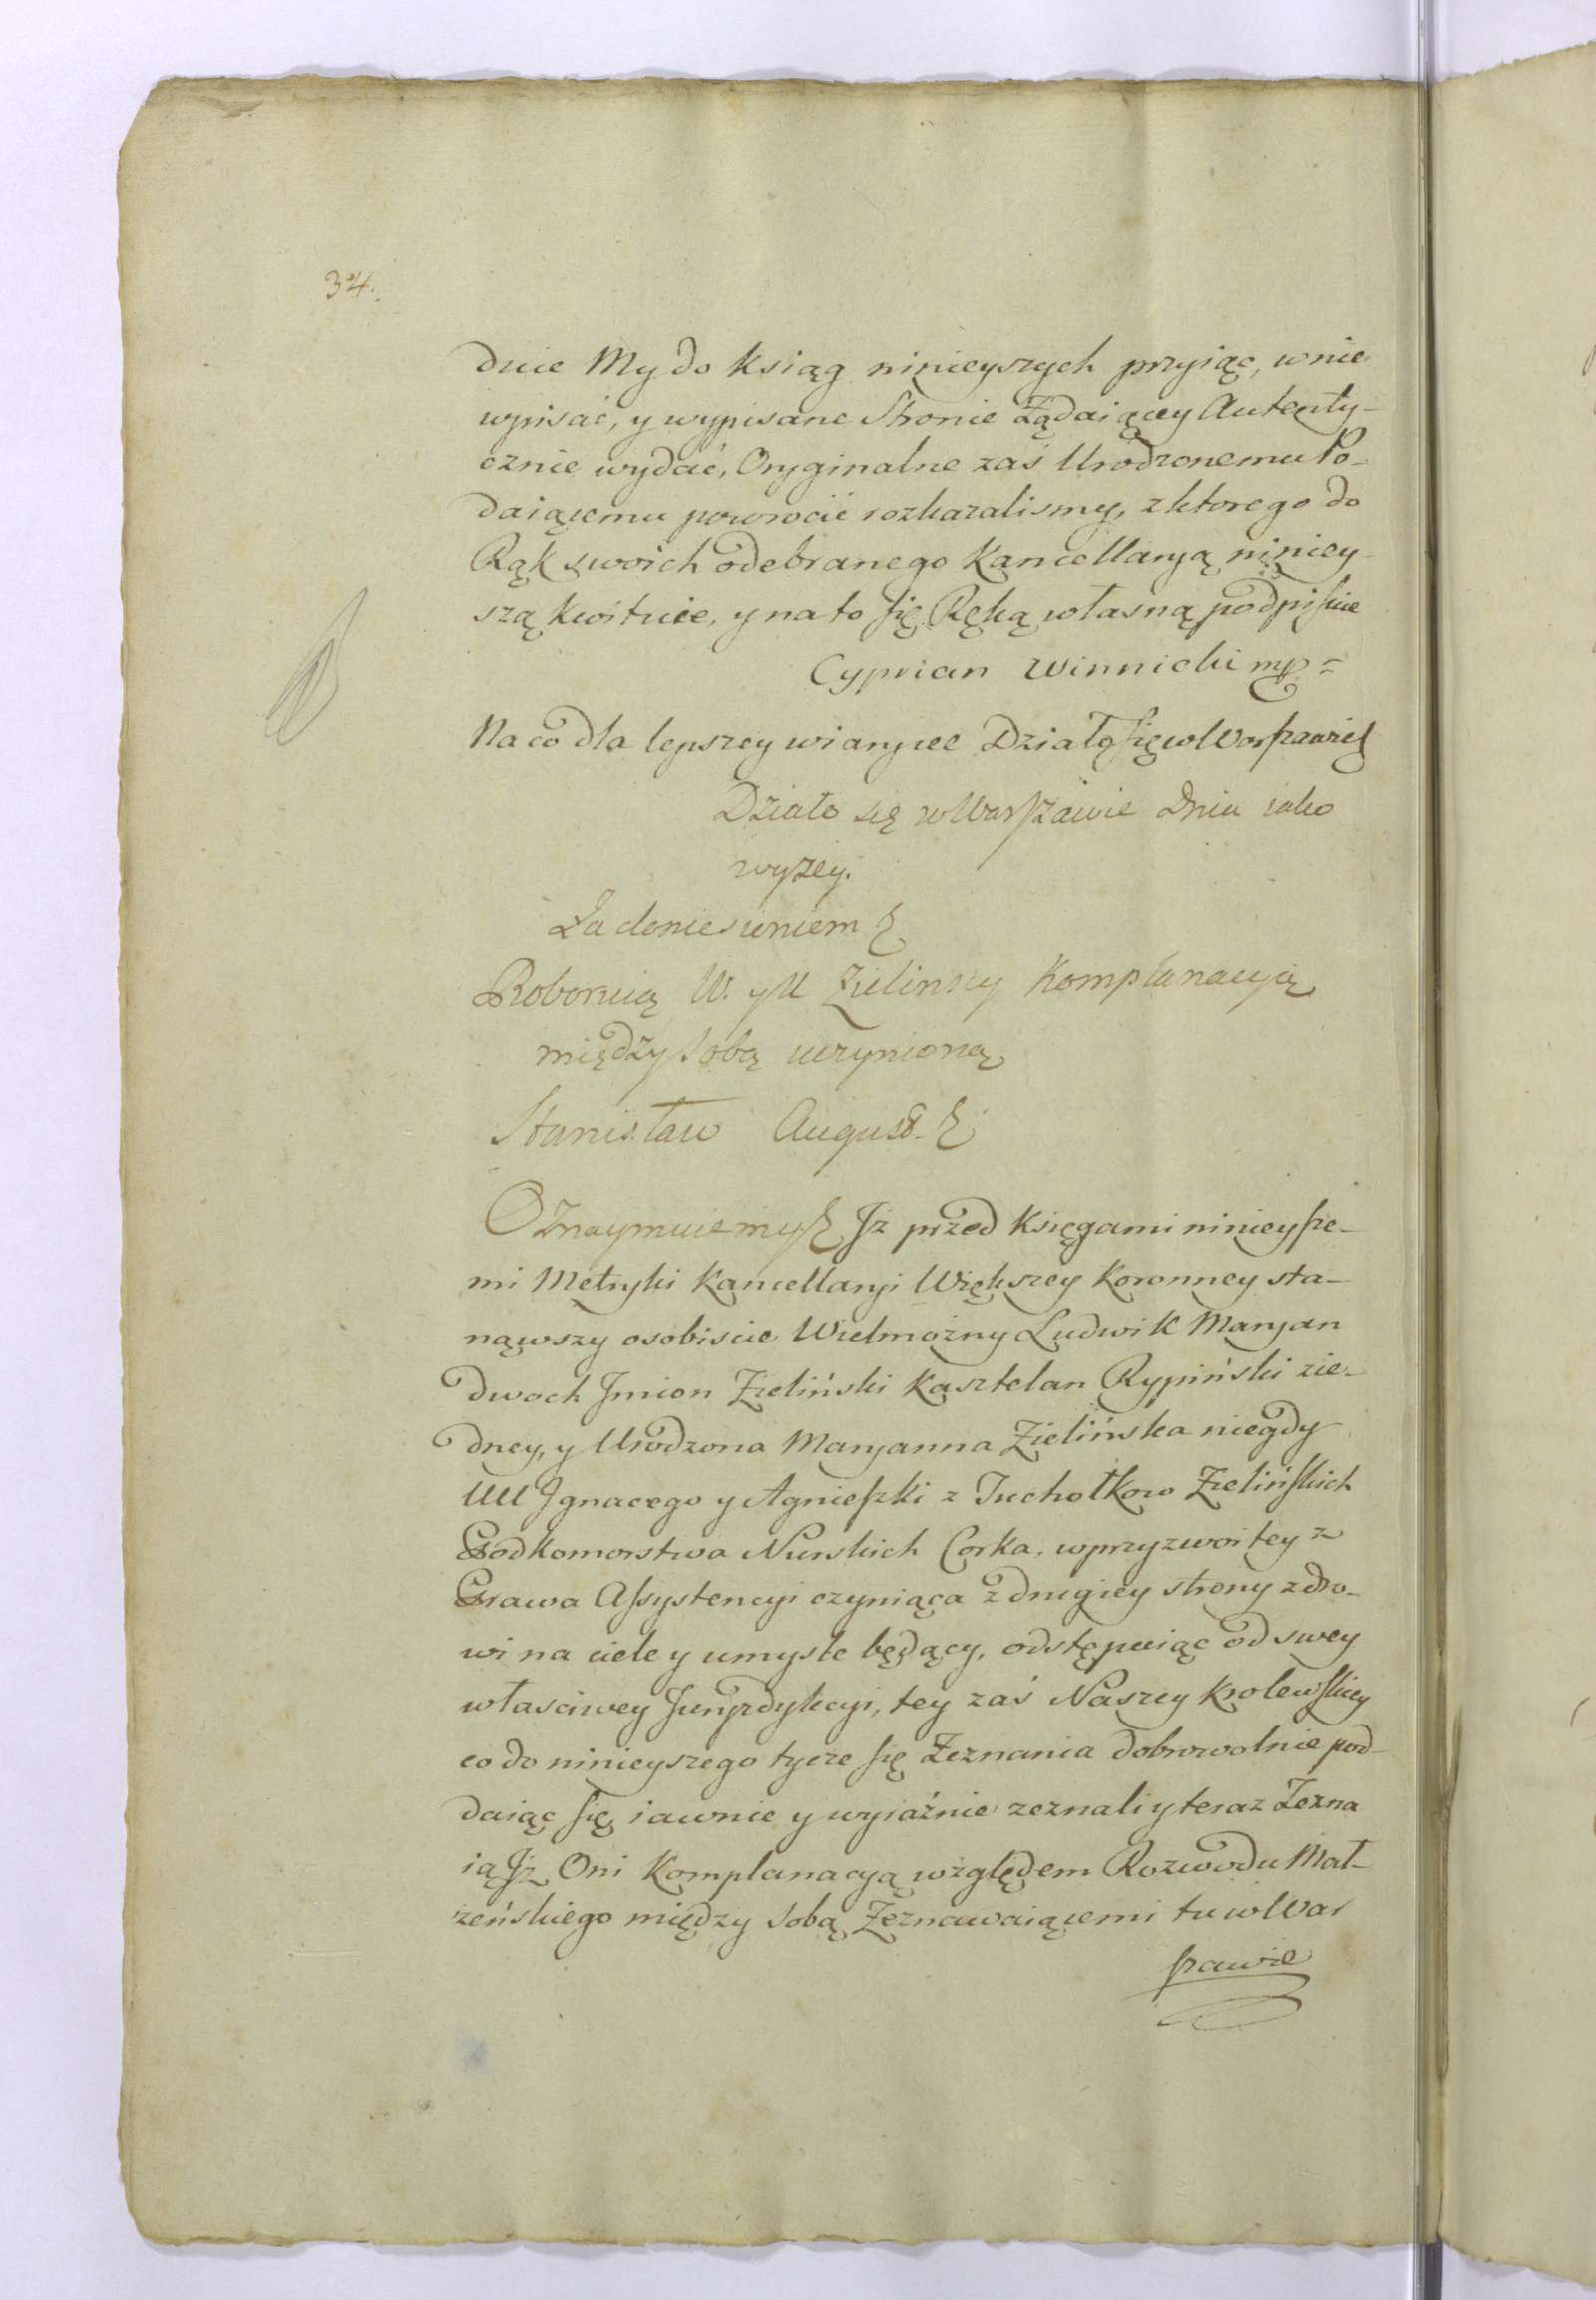 34.
duie My do Ksiąg ninieyszych przyiąc, w nie
wpisać, y wypisane Stronie Ządaiącey Autenty-
cznie wydać, Oryginalne zaś Urodzonemu Po-
daiącemu powrocić rozkazalismy, z ktorego do
Rąk swoich odebranego Kancellaryą niniey-
szą kwituie, y na to się Ręką własną podpisuie
Cyprian Winnicki mp=
Na co dla lepszey wiary ec Działo się w Warszawie
Działo się w Warszawie Dnia iako
wyzey.
Za doniesieniem
Roboruią W. y U Zielinscy Komplanacyią
między Sobą uczynioną
Stanisław August
Oznaymuiemy Jż przed Księgami ninieysze-
mi Metryki Kancellaryi Większey Koronney sta-
nąwszy osobiscie Wielmożny Ludwik Maryan
dwoch Jmion Zieliński Kasztelan Rypiński zie-
dney, y Urodzona Maryanna Zielińska niegdy
UU Jgnacego y Agnieszki z Tuchołkow Zielińskich
Podkomorstwa Nurskich Corka. w przyzwoitey z
Prawa Assystencyi czyniąca z drugiey strony zdro-
wi na ciele y umysle będący, odstępuiąc od swey
własciwey Juryzdykcyi, tey zaś Naszey Krolewskiey
co do ninieyszego tycze się Zeznania dobrowolnie pod-
daiąc się, iawnie y wyiaźnie zeznali y teraz Zezna
ią Jż Oni Komplanacyą względem Rozwodu Mał-
żeńskiego między Sobą Zeznawaiącemi tu w War
szawie